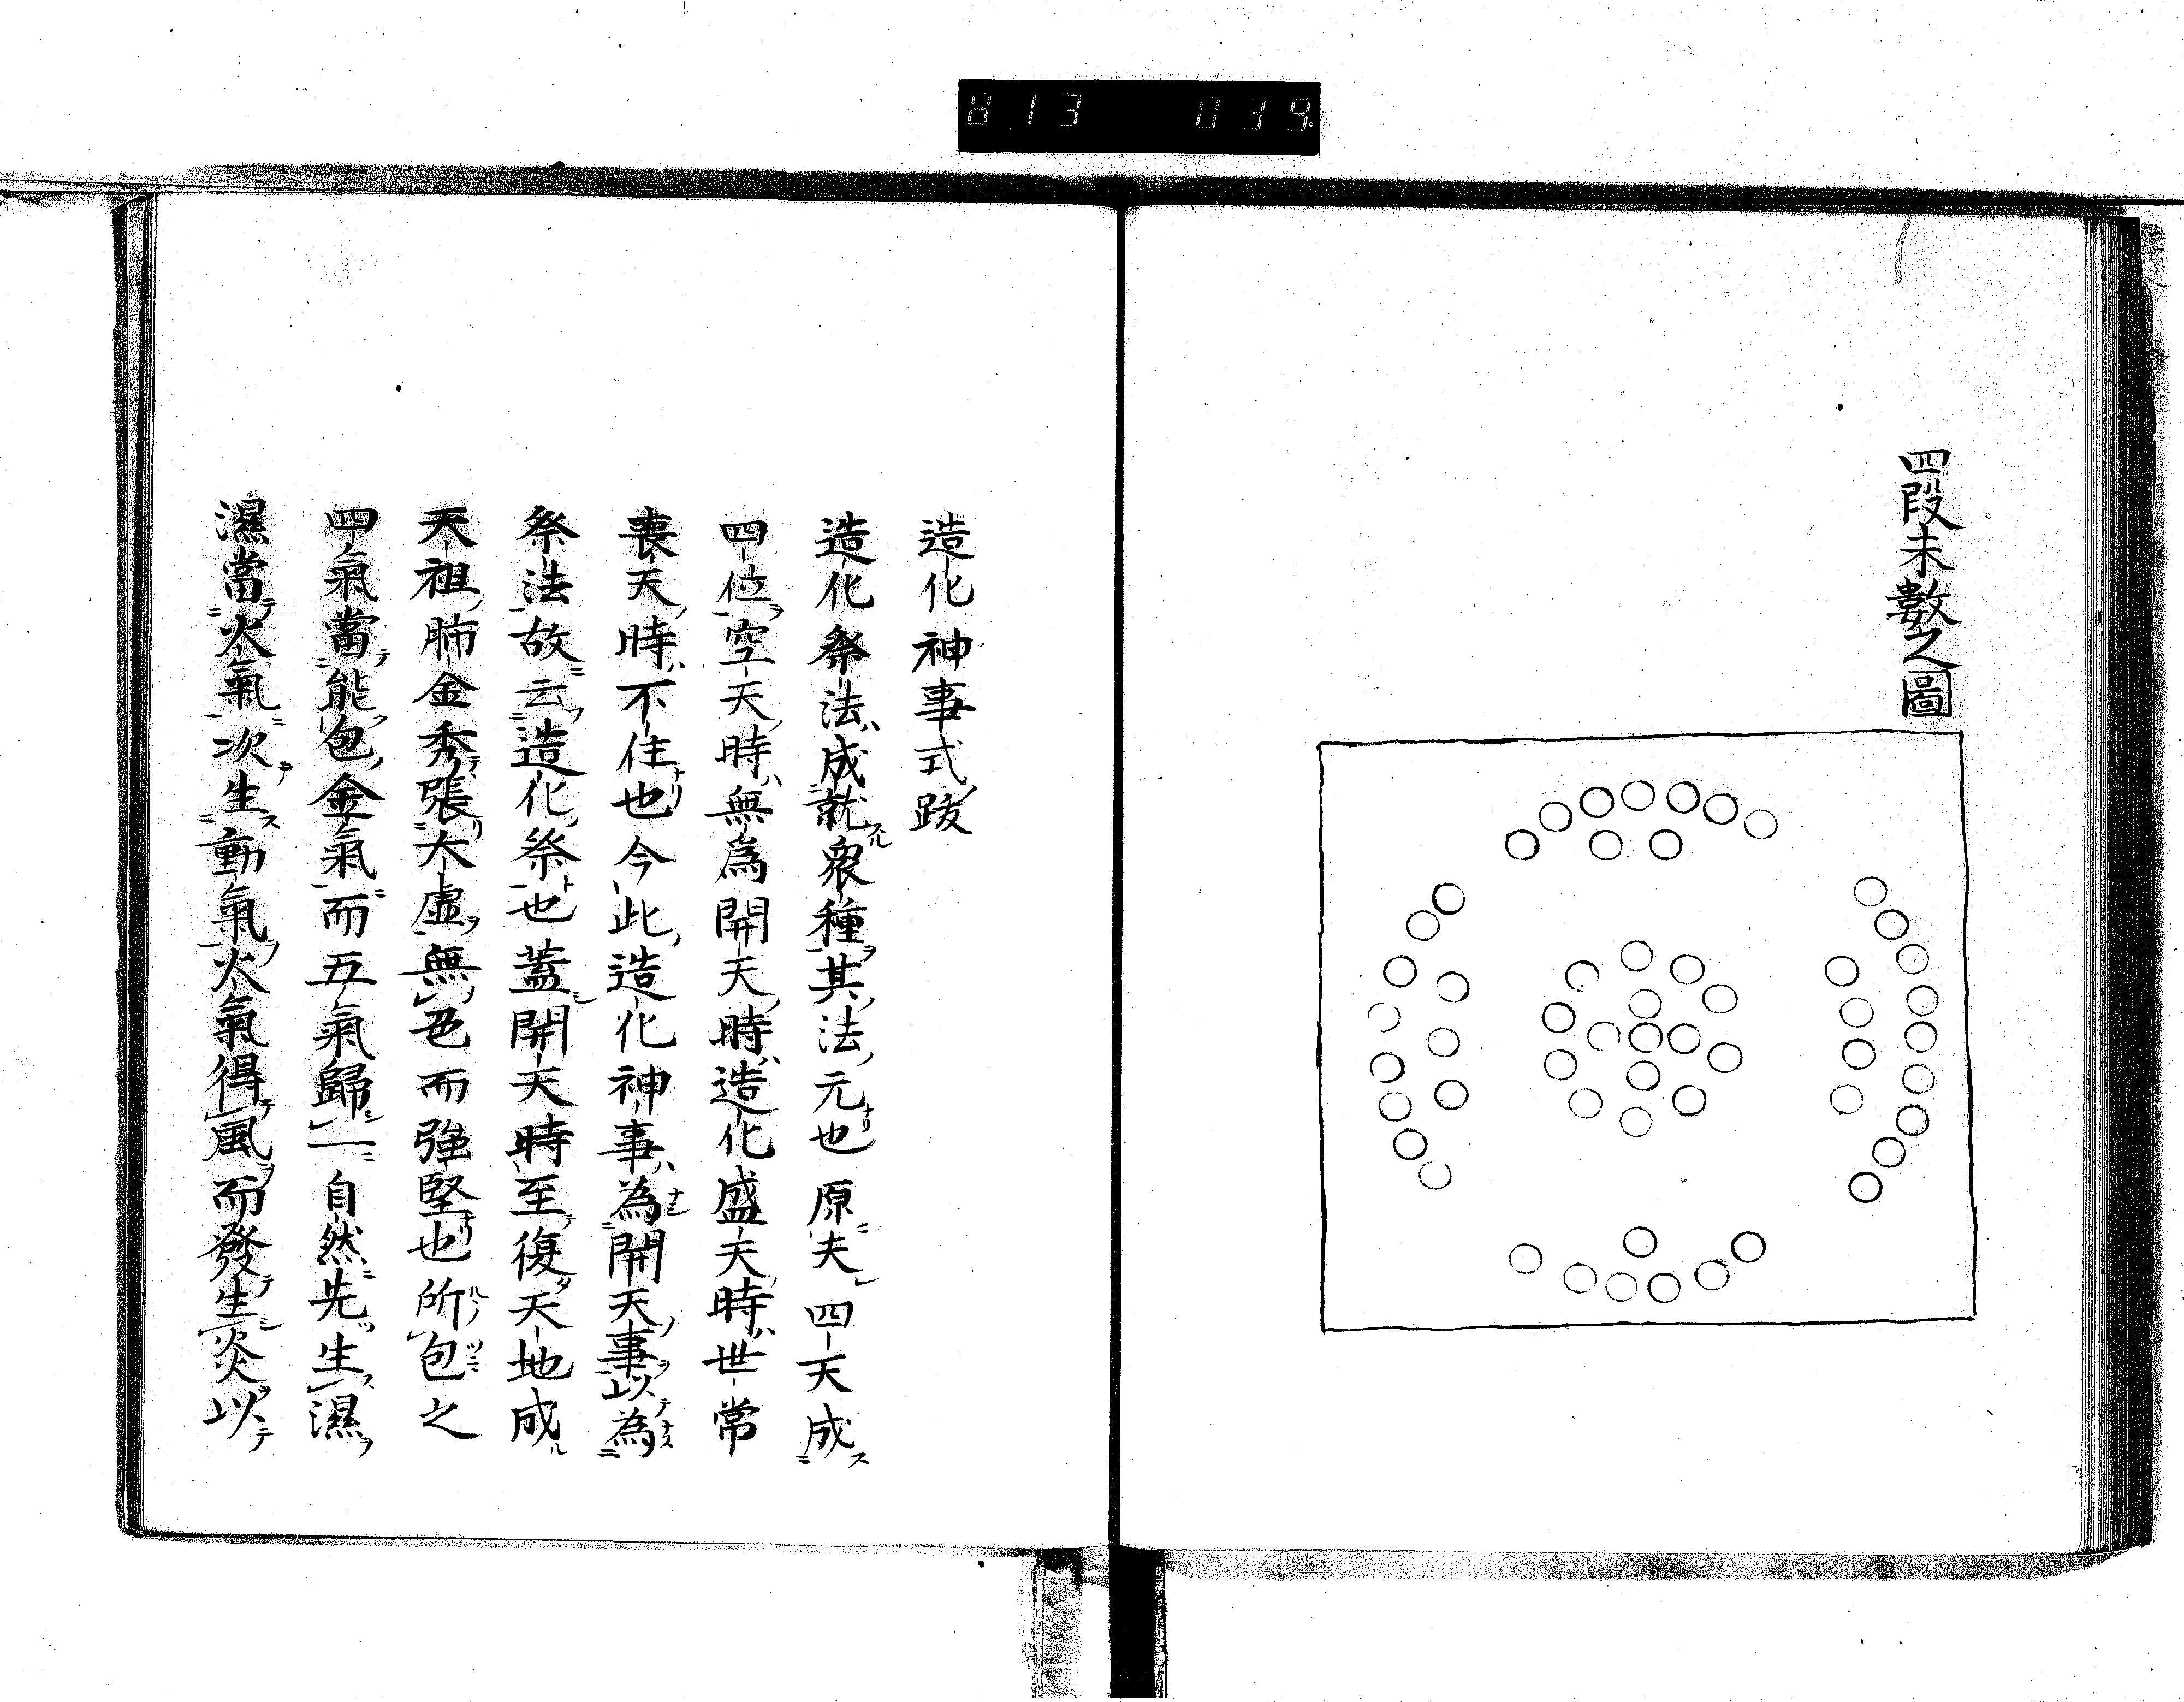 813 039
四段未數之圖
造化神事式跋
造化祭法成就衆種其法元也原夫四天成
四位空天時無為開天時造化盛天時世常
喪天時不住也今此造化神事為開天事以為
祭法故云造化祭也蓋開天時至復天地成
天祖肺金秀張大虛無色而強堅也所包之
四氣當能包金氣而五氣歸一自然先生濕
濕當火氣次生動氣火氣得風而發生炎以